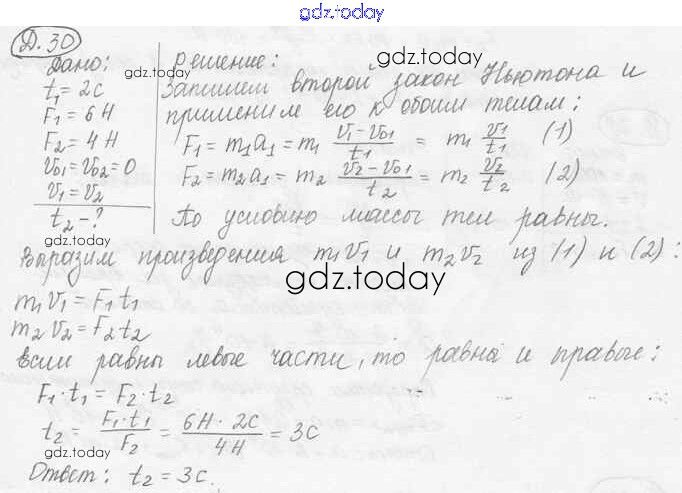 gdz.today
Д.30
Дано:
t₁=2с
F₁=6Н
F₂=4Н
v₀₁=v₀₂=0
v₁=v₂
t₂-?
Решение:
gdz.today
gdz.today
Запишем второй закон Ньютона и
применим его к обоим телам:
F₁=m₁a₁=m₁ (v₁-v₀₁)/t₁ = m₁ v₁/t₁ (1)
gdz.today
F₂=m₂a₁=m₂ (v₂-v₀₁)/t₂ = m₂ v₂/t₂ (2)
По условию массы тел равны.
Выразим произведения m₁v₁ и m₂v₂ из (1) и (2):
gdz.today
m₁v₁=F₁t₁
m₂v₂=F₂t₂
если равны левые части, то равны и правые:
F₁·t₁=F₂·t₂
t₂= F₁·t₁/F₂ = 6Н·2с/4Н =3с
Ответ: t₂=3с.
gdz.today